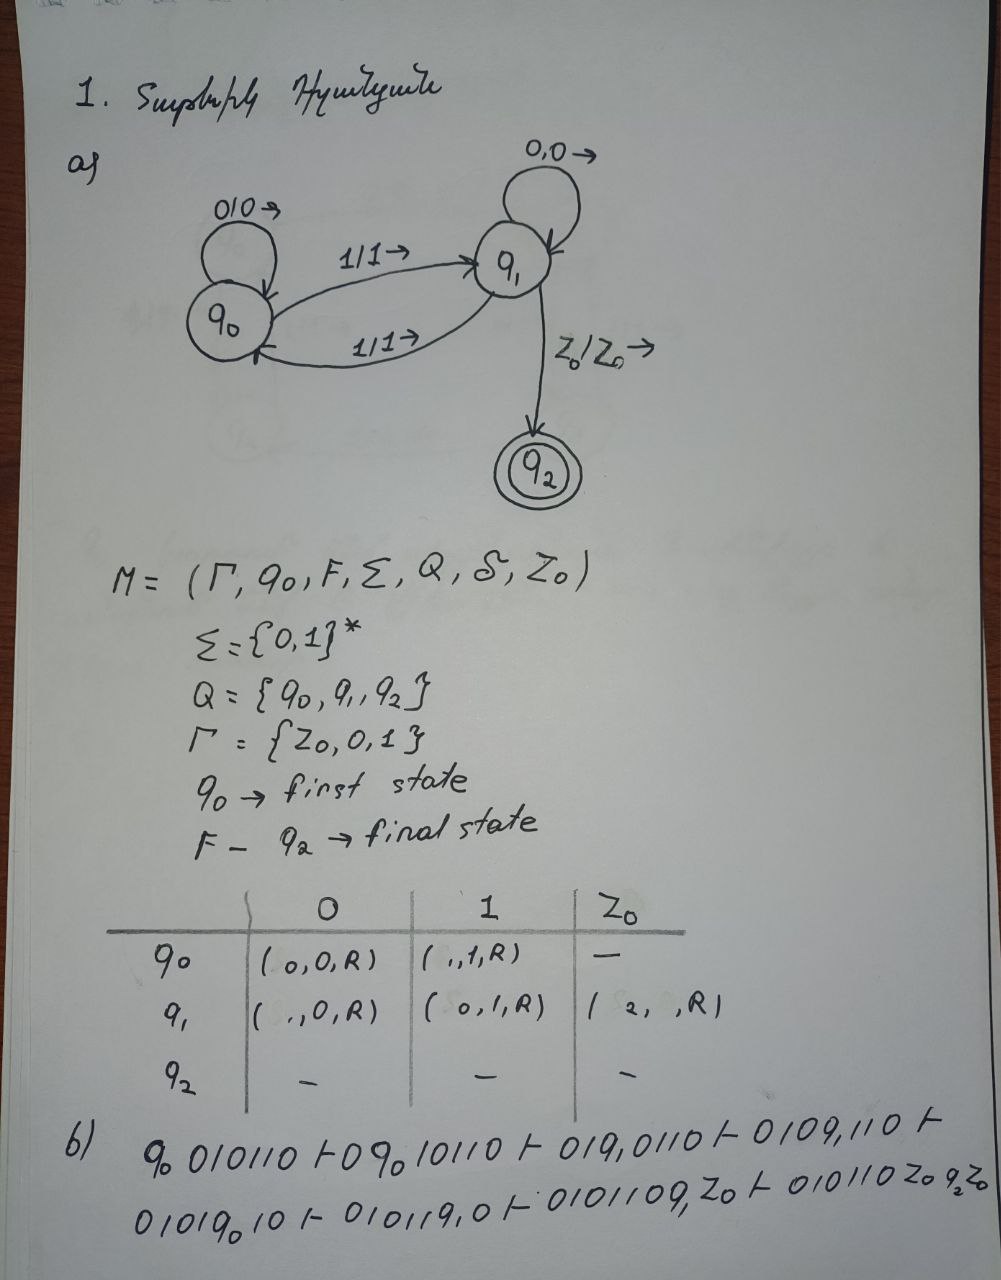 1.
a)
0,0→
0/0→
1/1→
q₁
q₀
1/1→
Z₀/Z₀→
q₂
M = (Γ, q₀, F, Σ, Q, δ, Z₀)
Σ = {0,1}*
Q = {q₀, q₁, q₂}
Γ = {Z₀, 0, 1}
q₀ → first state
F – q₂ → final state
0 1 Z₀
q₀ ( ₀,0,R) ( ₁,1,R) –
q₁ ( ₁,0,R) ( ₀,1,R) ( ₂, ,R)
q₂ – – –
b) q₀ 010110 ⊢ 0q₀10110 ⊢ 01q₁0110 ⊢ 010q₁110 ⊢
0101q₀10 ⊢ 01011q₁0 ⊢ 010110q₁Z₀ ⊢ 010110Z₀q₂Z₀